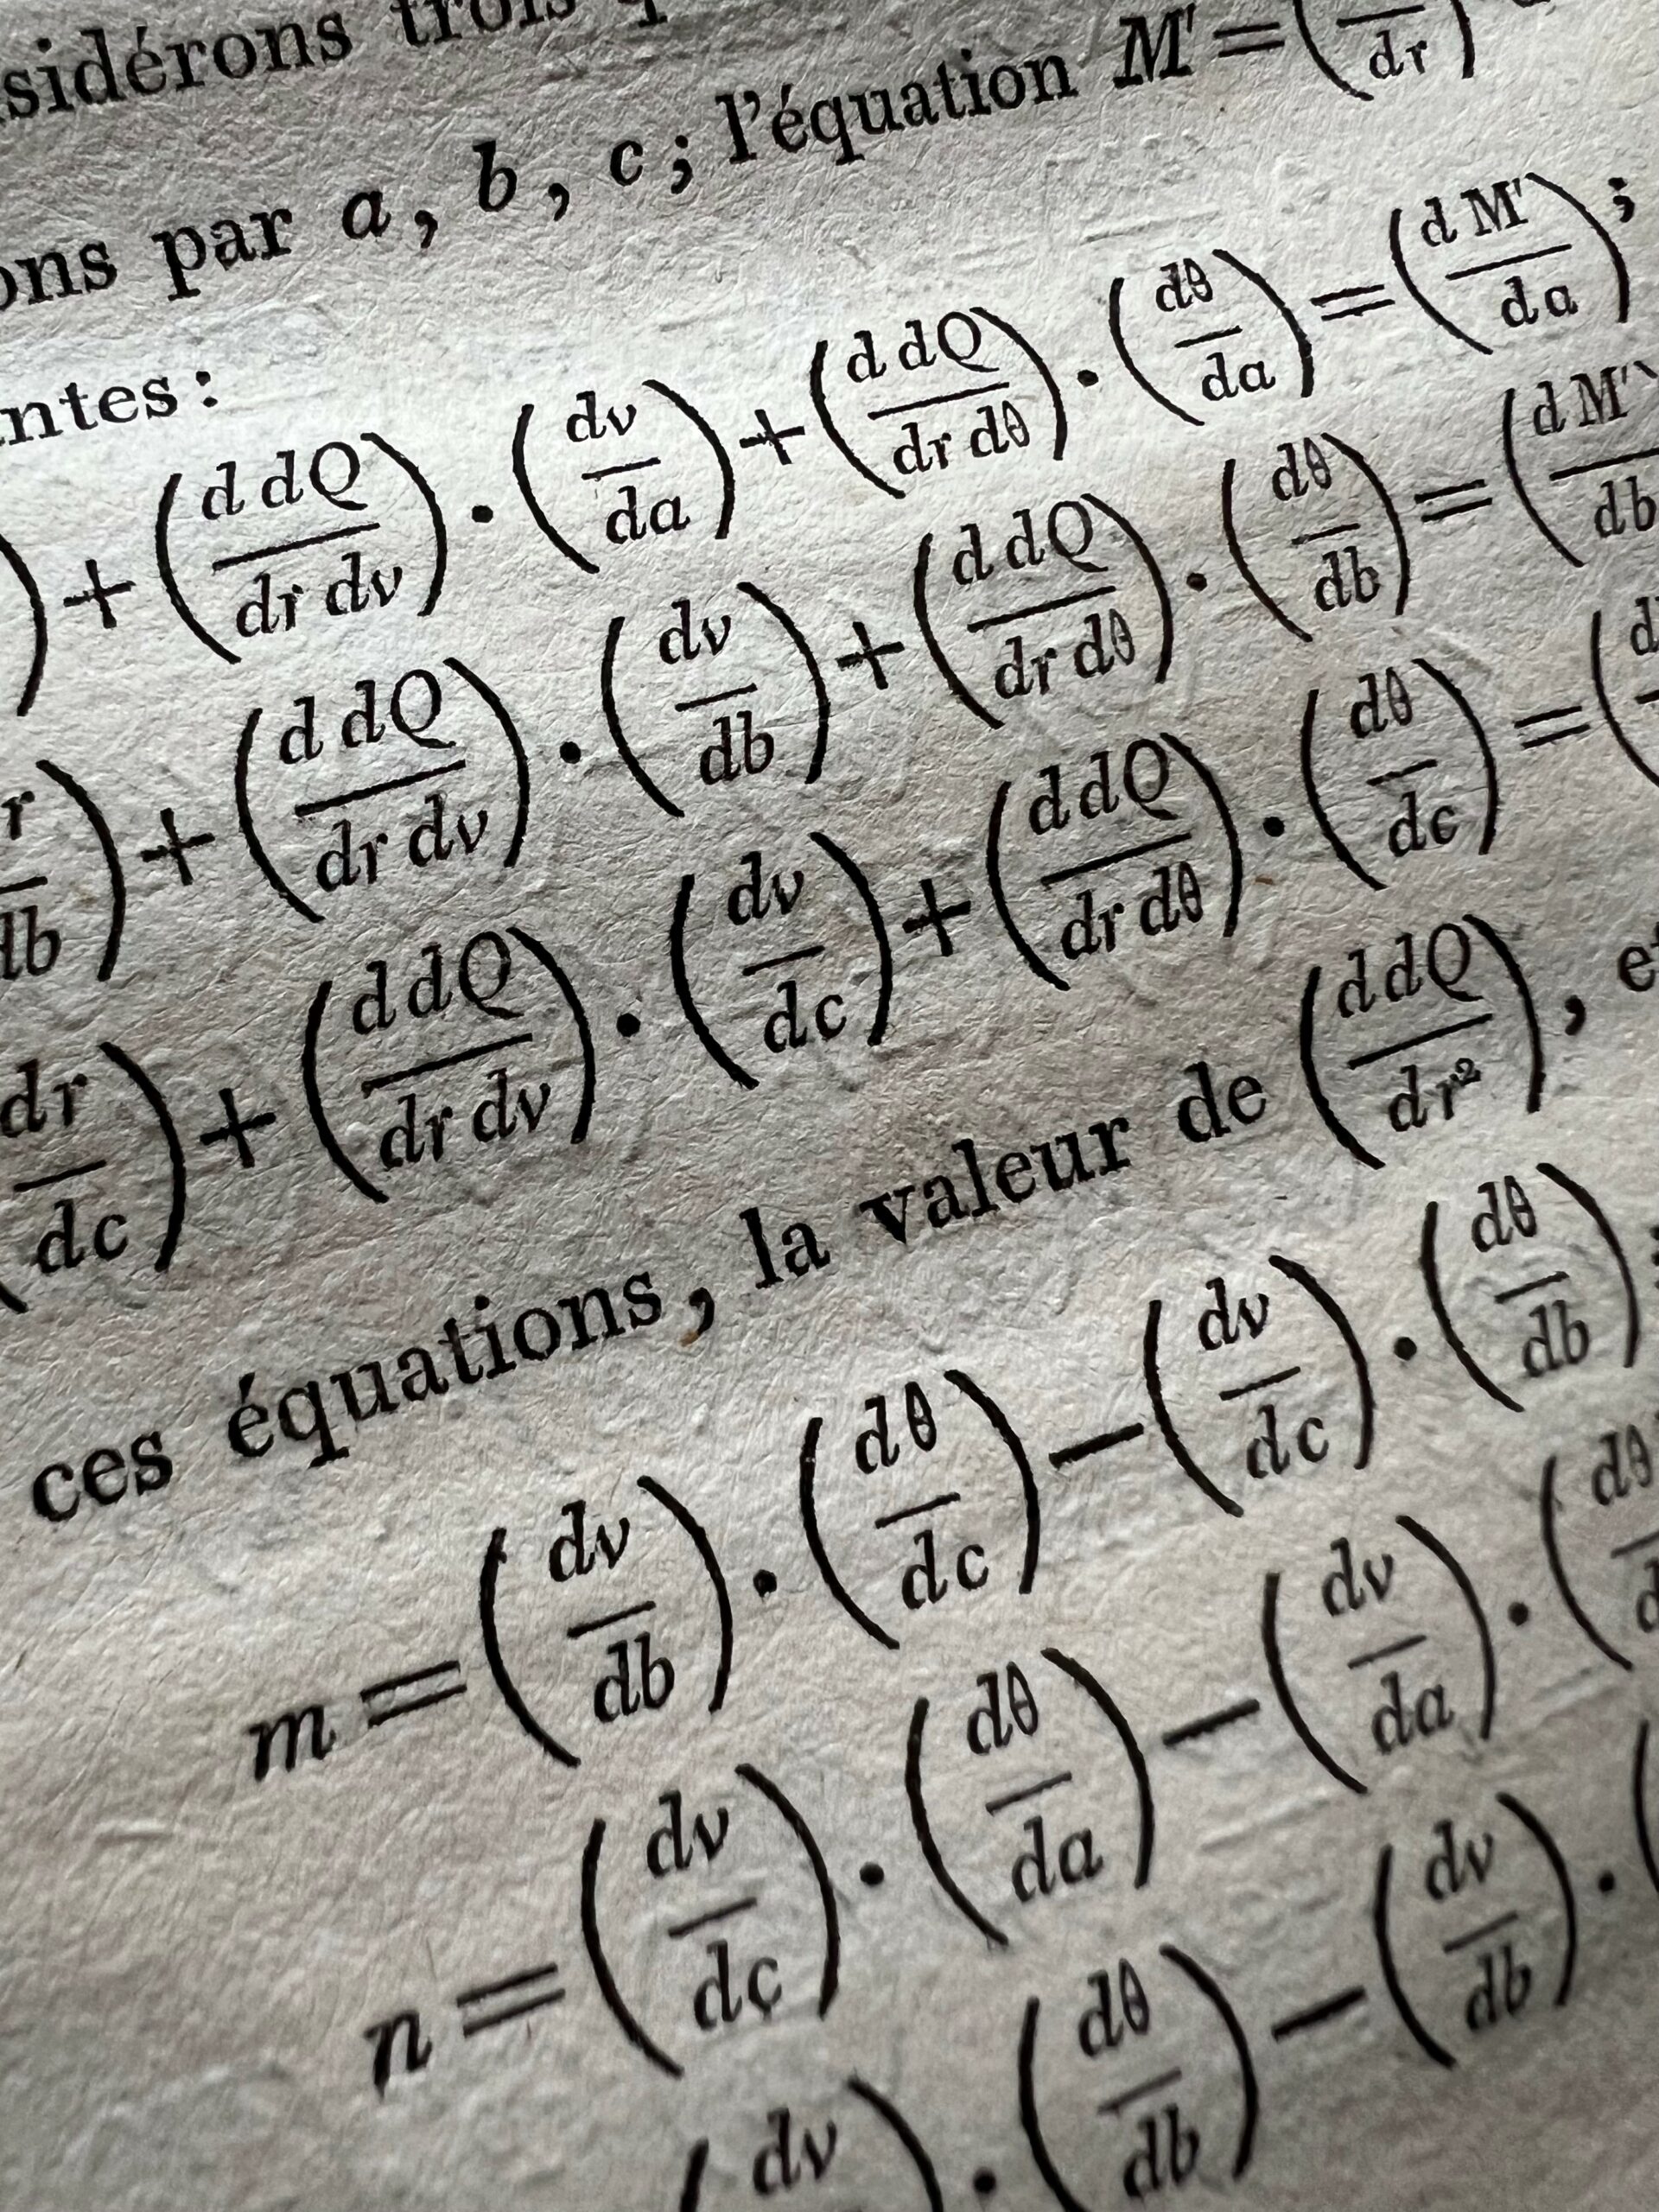 sidérons trois
ons par a, b, c; l'équation M' = ( / dr)
ntes:
) + (d dQ / dr dv) . (dv / da) + (d dQ / dr dθ) . (dθ / da) = (d M' / da);
r / db) + (d dQ / dr dv) . (dv / db) + (d dQ / dr dθ) . (dθ / db) = (d M' / db
dr / dc) + (d dQ / dr dv) . (dv / dc) + (d dQ / dr dθ) . (dθ / dc) = (d
ces équations, la valeur de (d dQ / dr²), et
m = (dv / db) . (dθ / dc) − (dv / dc) . (dθ / db)
n = (dv / dc) . (dθ / da) − (dv / da) . (dθ / d
(dv ) . (dθ / db) − (dv / db) . (